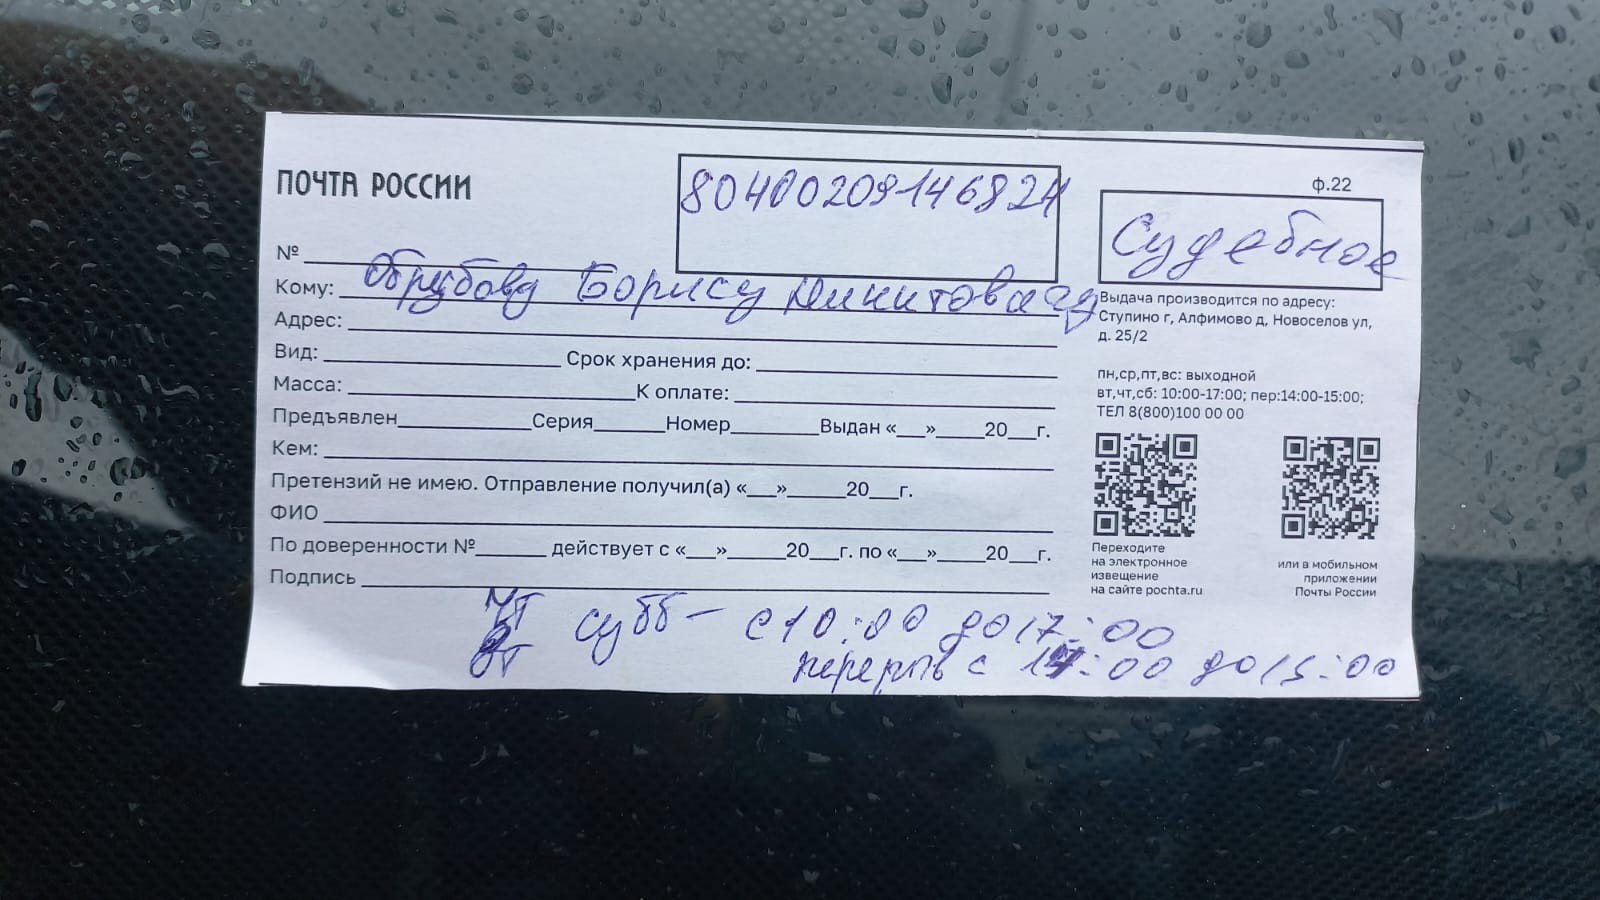 ПОЧТА РОССИИ
80400209146824
ф.22
Судебное
№
Кому: Обрубову Борису Никитовичу
Адрес:
Вид: Срок хранения до:
Масса: К оплате:
Предъявлен Серия Номер Выдан « » 20 г.
Кем:
Претензий не имею. Отправление получил(а) « » 20 г.
ФИО
По доверенности № действует с « » 20 г. по « » 20 г.
Подпись
Выдача производится по адресу:
Ступино г, Алфимово д, Новоселов ул,
д. 25/2
пн,ср,пт,вс: выходной
вт,чт,сб: 10:00-17:00; пер:14:00-15:00;
ТЕЛ 8(800)100 00 00
Переходите
на электронное
извещение
на сайте pochta.ru
или в мобильном
приложении
Почты России
чт субб - с 10:00 до 17:00
вт перерыв с 14:00 до 15:00